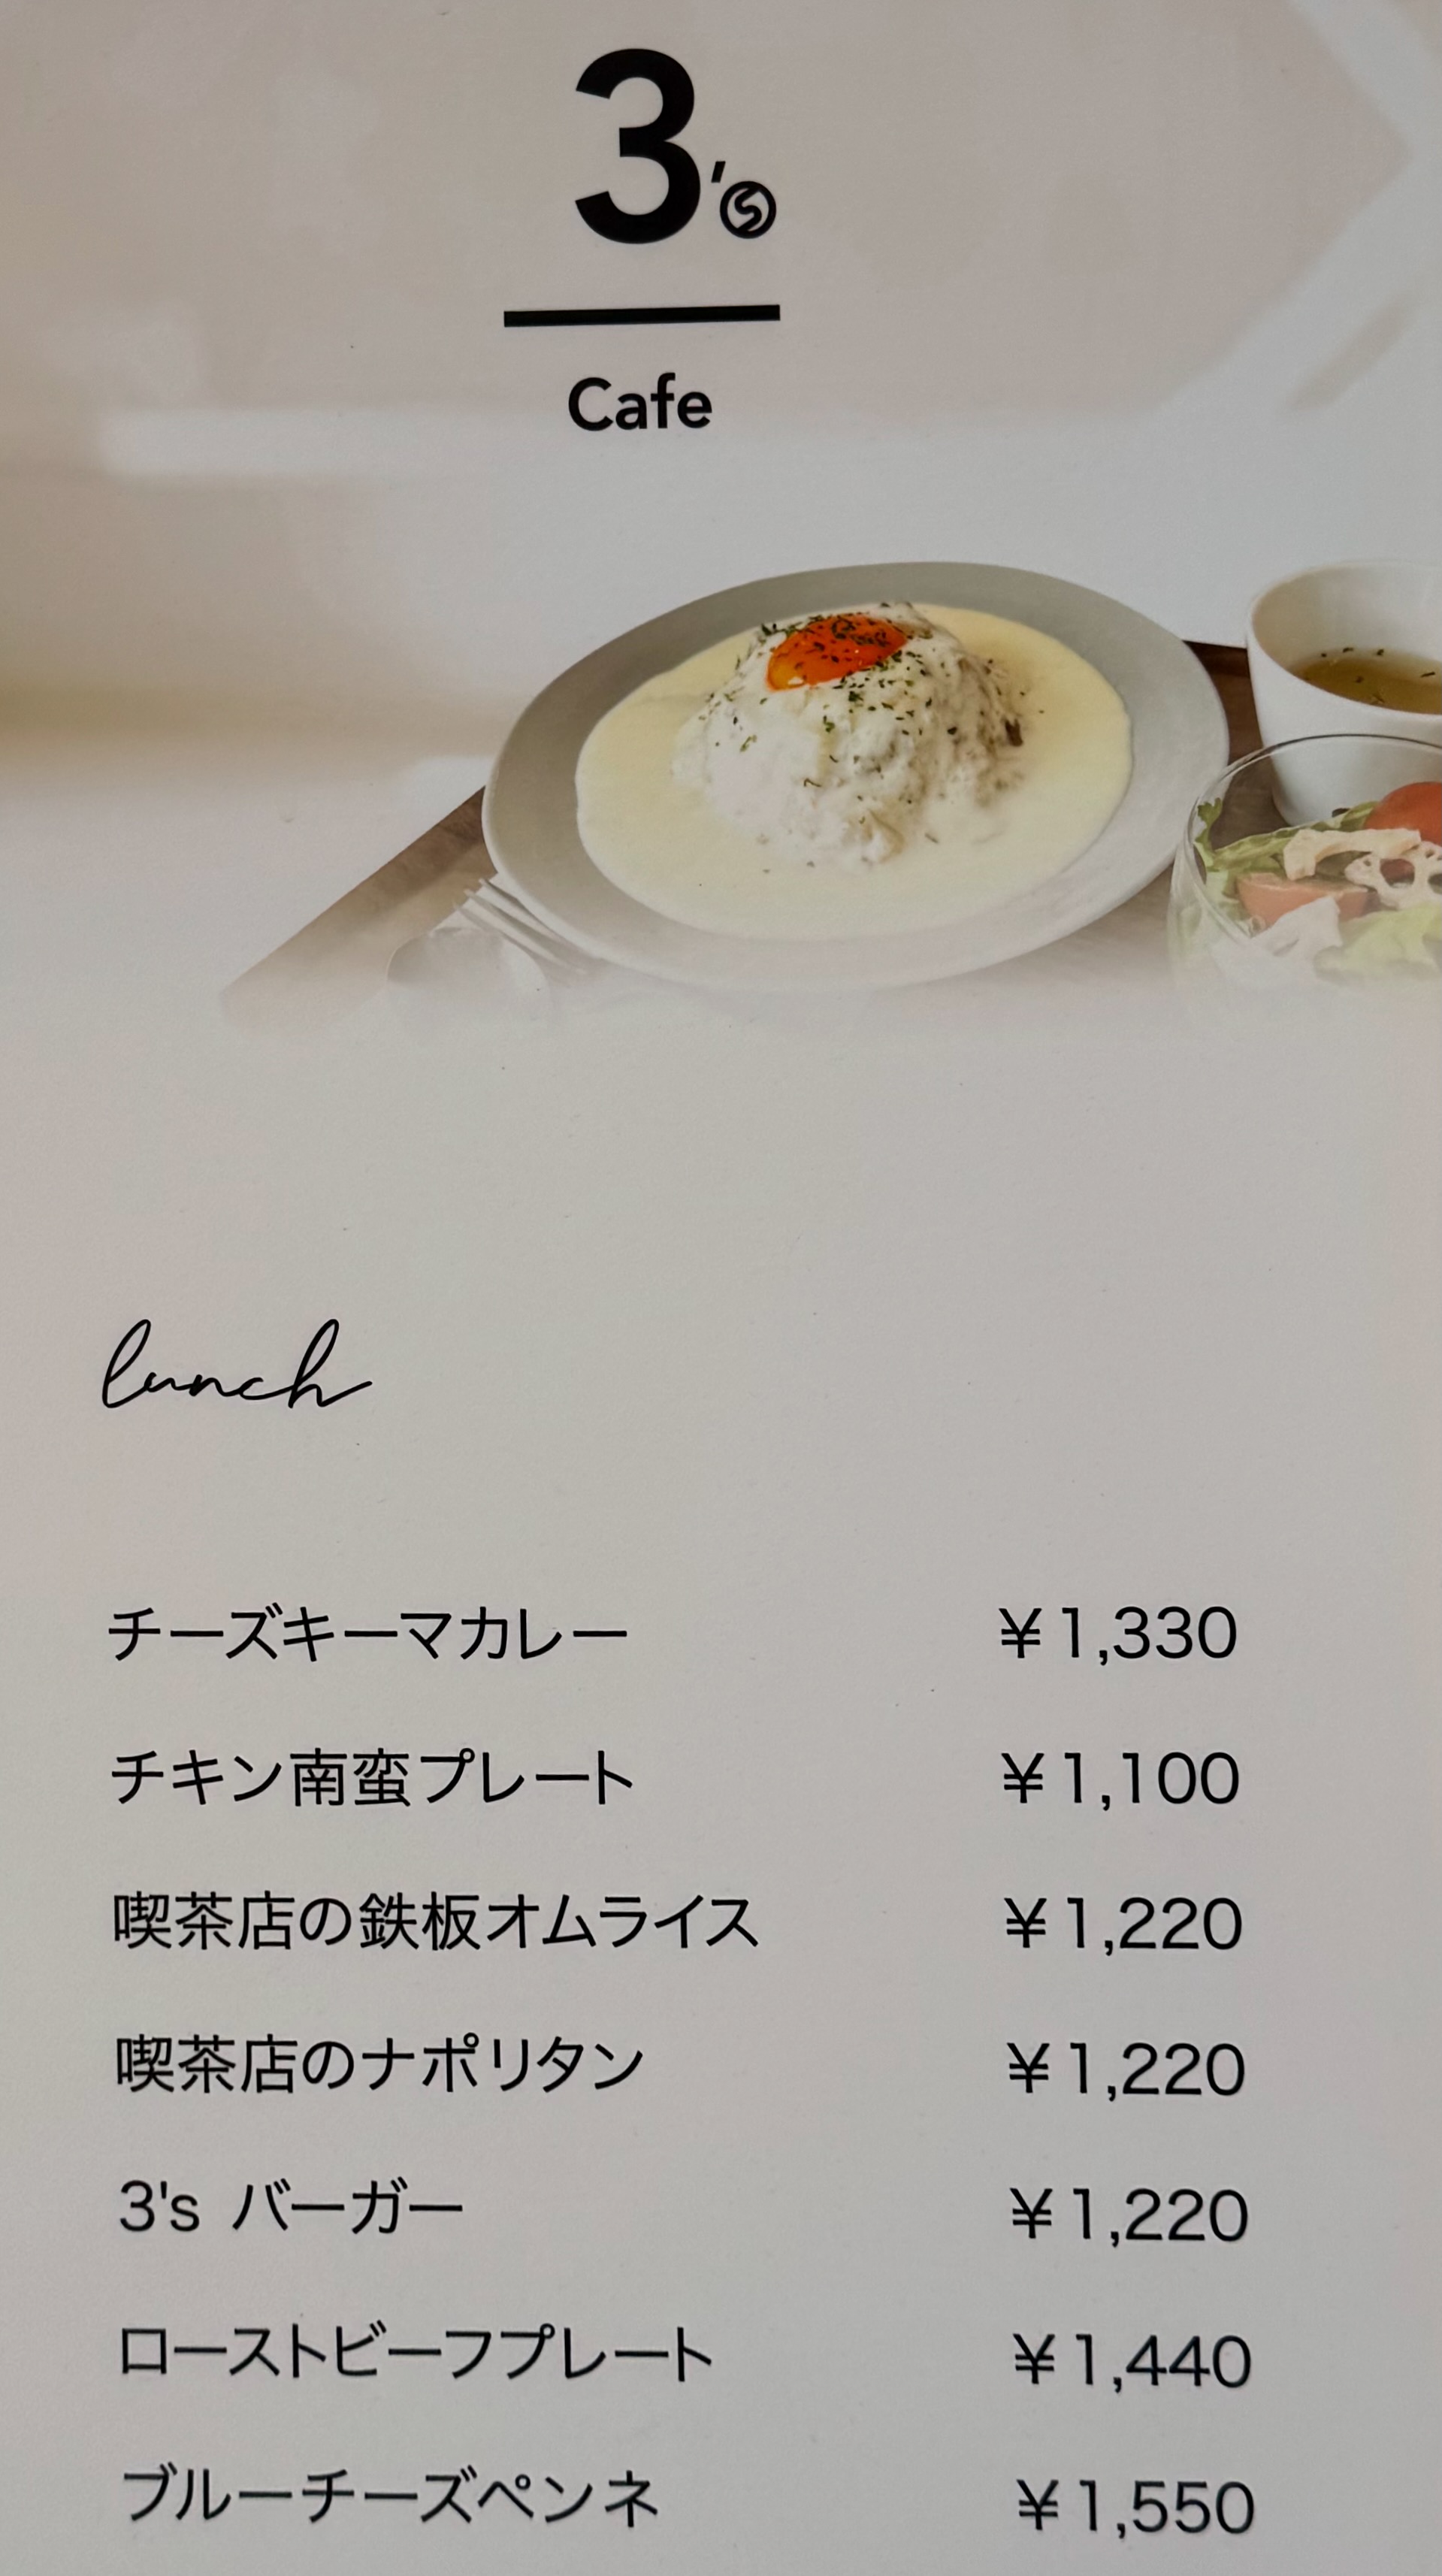 3's
Cafe
lunch
チーズキーマカレー ¥1,330
チキン南蛮プレート ¥1,100
喫茶店の鉄板オムライス ¥1,220
喫茶店のナポリタン ¥1,220
3's バーガー ¥1,220
ローストビーフプレート ¥1,440
ブルーチーズペンネ ¥1,550